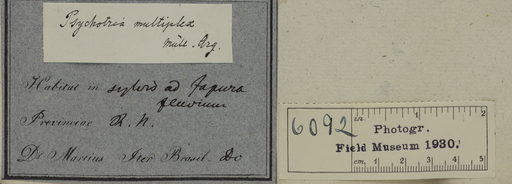 Psychotria multiplex
Müll. Arg.
Habitat in sylvis ad Japura
fluvium
Provinciae R. N.
Dr Martius Iter Brasil. &c
6092
in. 1 2
Photogr.
Field Museum 1930.
cm. 1 2 3 4 5